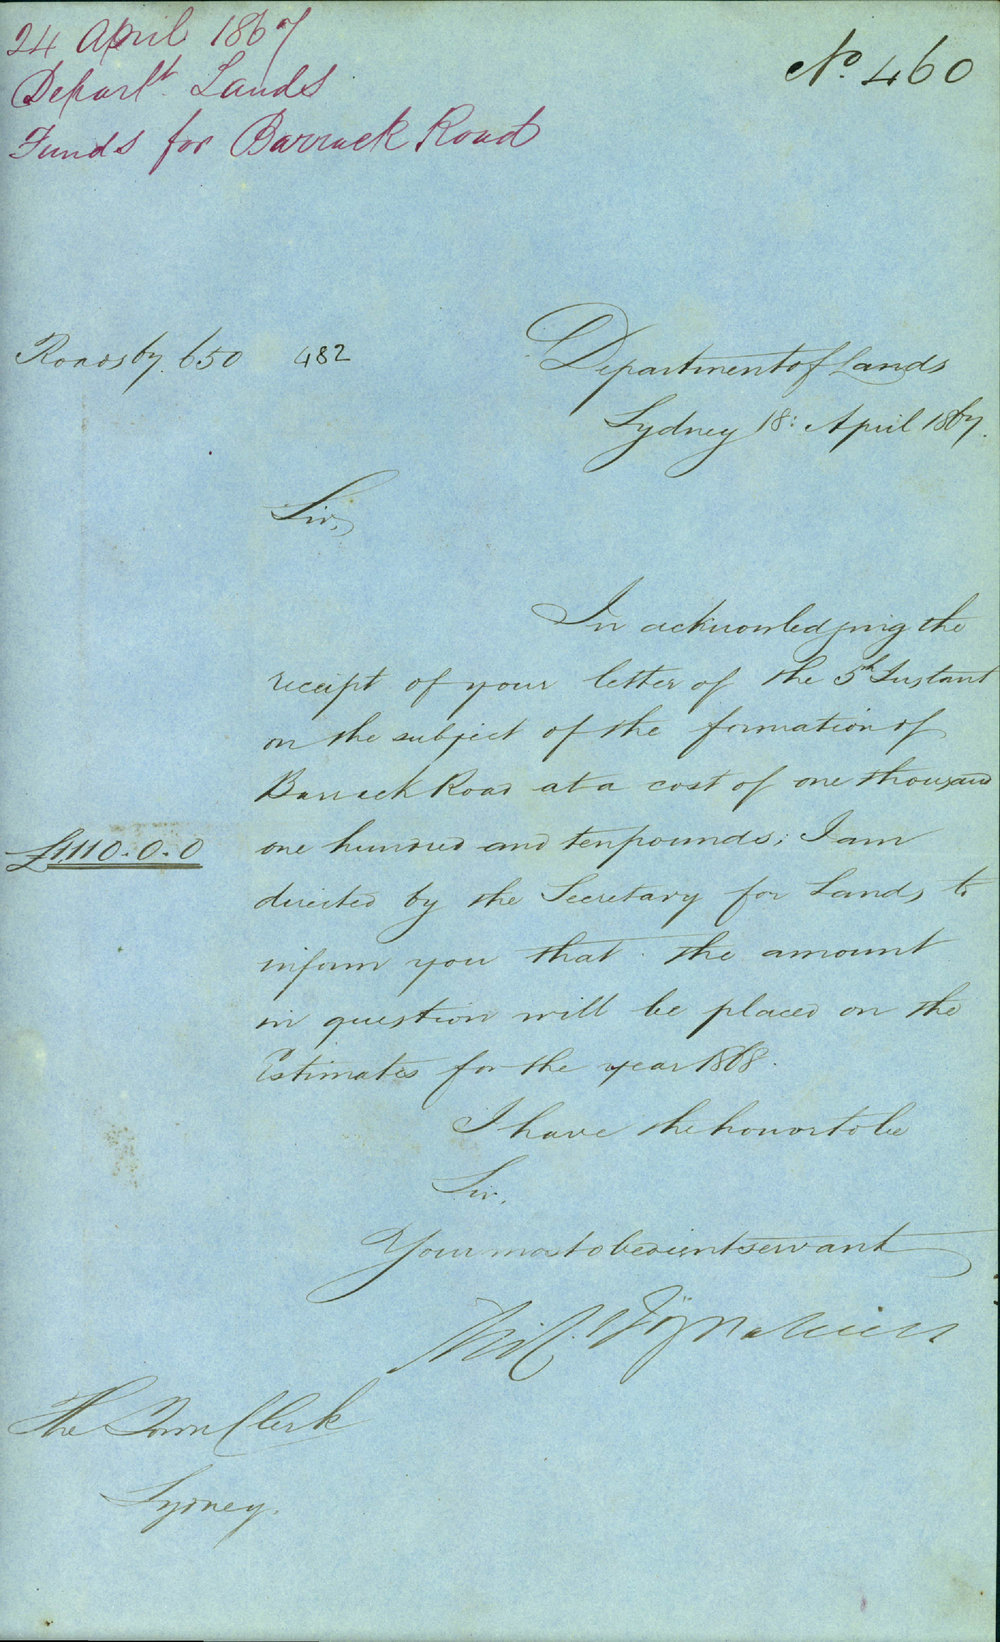 24 April 1867
Depart<sup>t</sup> Lands
Funds for Barrack Road
No. 460
Roads 67. 650 482
Department of Lands
Sydney 18: April 1867.
Sir,
In acknowledging the
receipt of your letter of the 5th Instant
on the subject of the formation of
Barrack Road at a cost of one thousand
one hundred and ten pounds; I am
£1110.0.0
directed by the Secretary for Lands to
inform you that the amount
in question will be placed on the
Estimates for the year 1868.
I have the honor to be
Sir,
Your most obedient servant
The Town Clerk
Sydney.